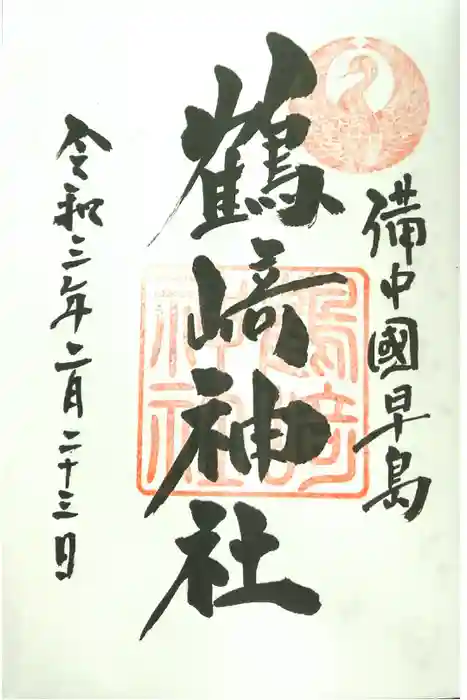 備中國早島
鶴﨑神社
令和三年二月二十三日
鶴崎神社